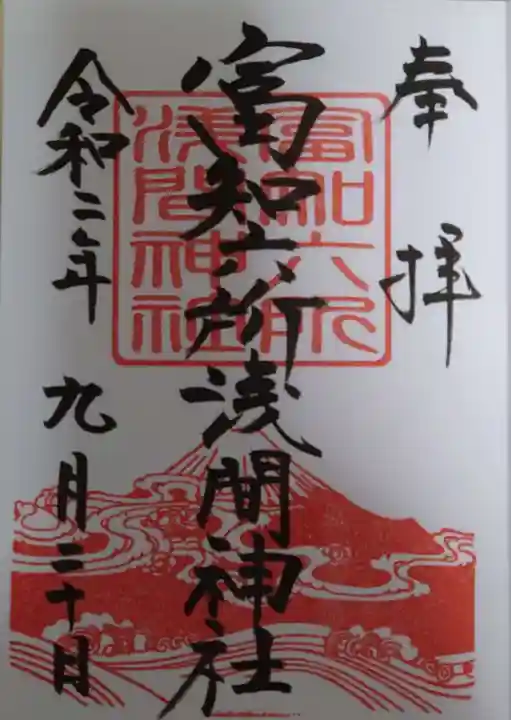 奉拝
富知六所浅間神社
令和二年 九月二十日
富知六所
浅間神社